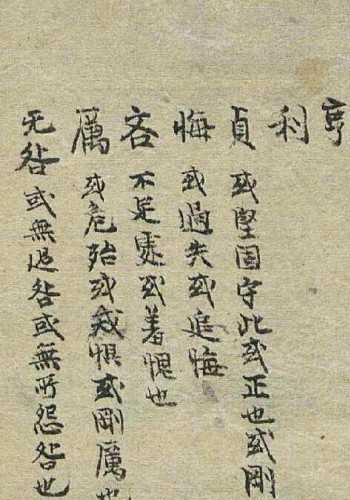 亨
利
貞 或堅固守此或正也或剛
悔 或過失或追悔
吝 不足處或羞愧也
厲 或危殆或戒懼或剛厲也
无咎 或無過咎或無所怨咎也